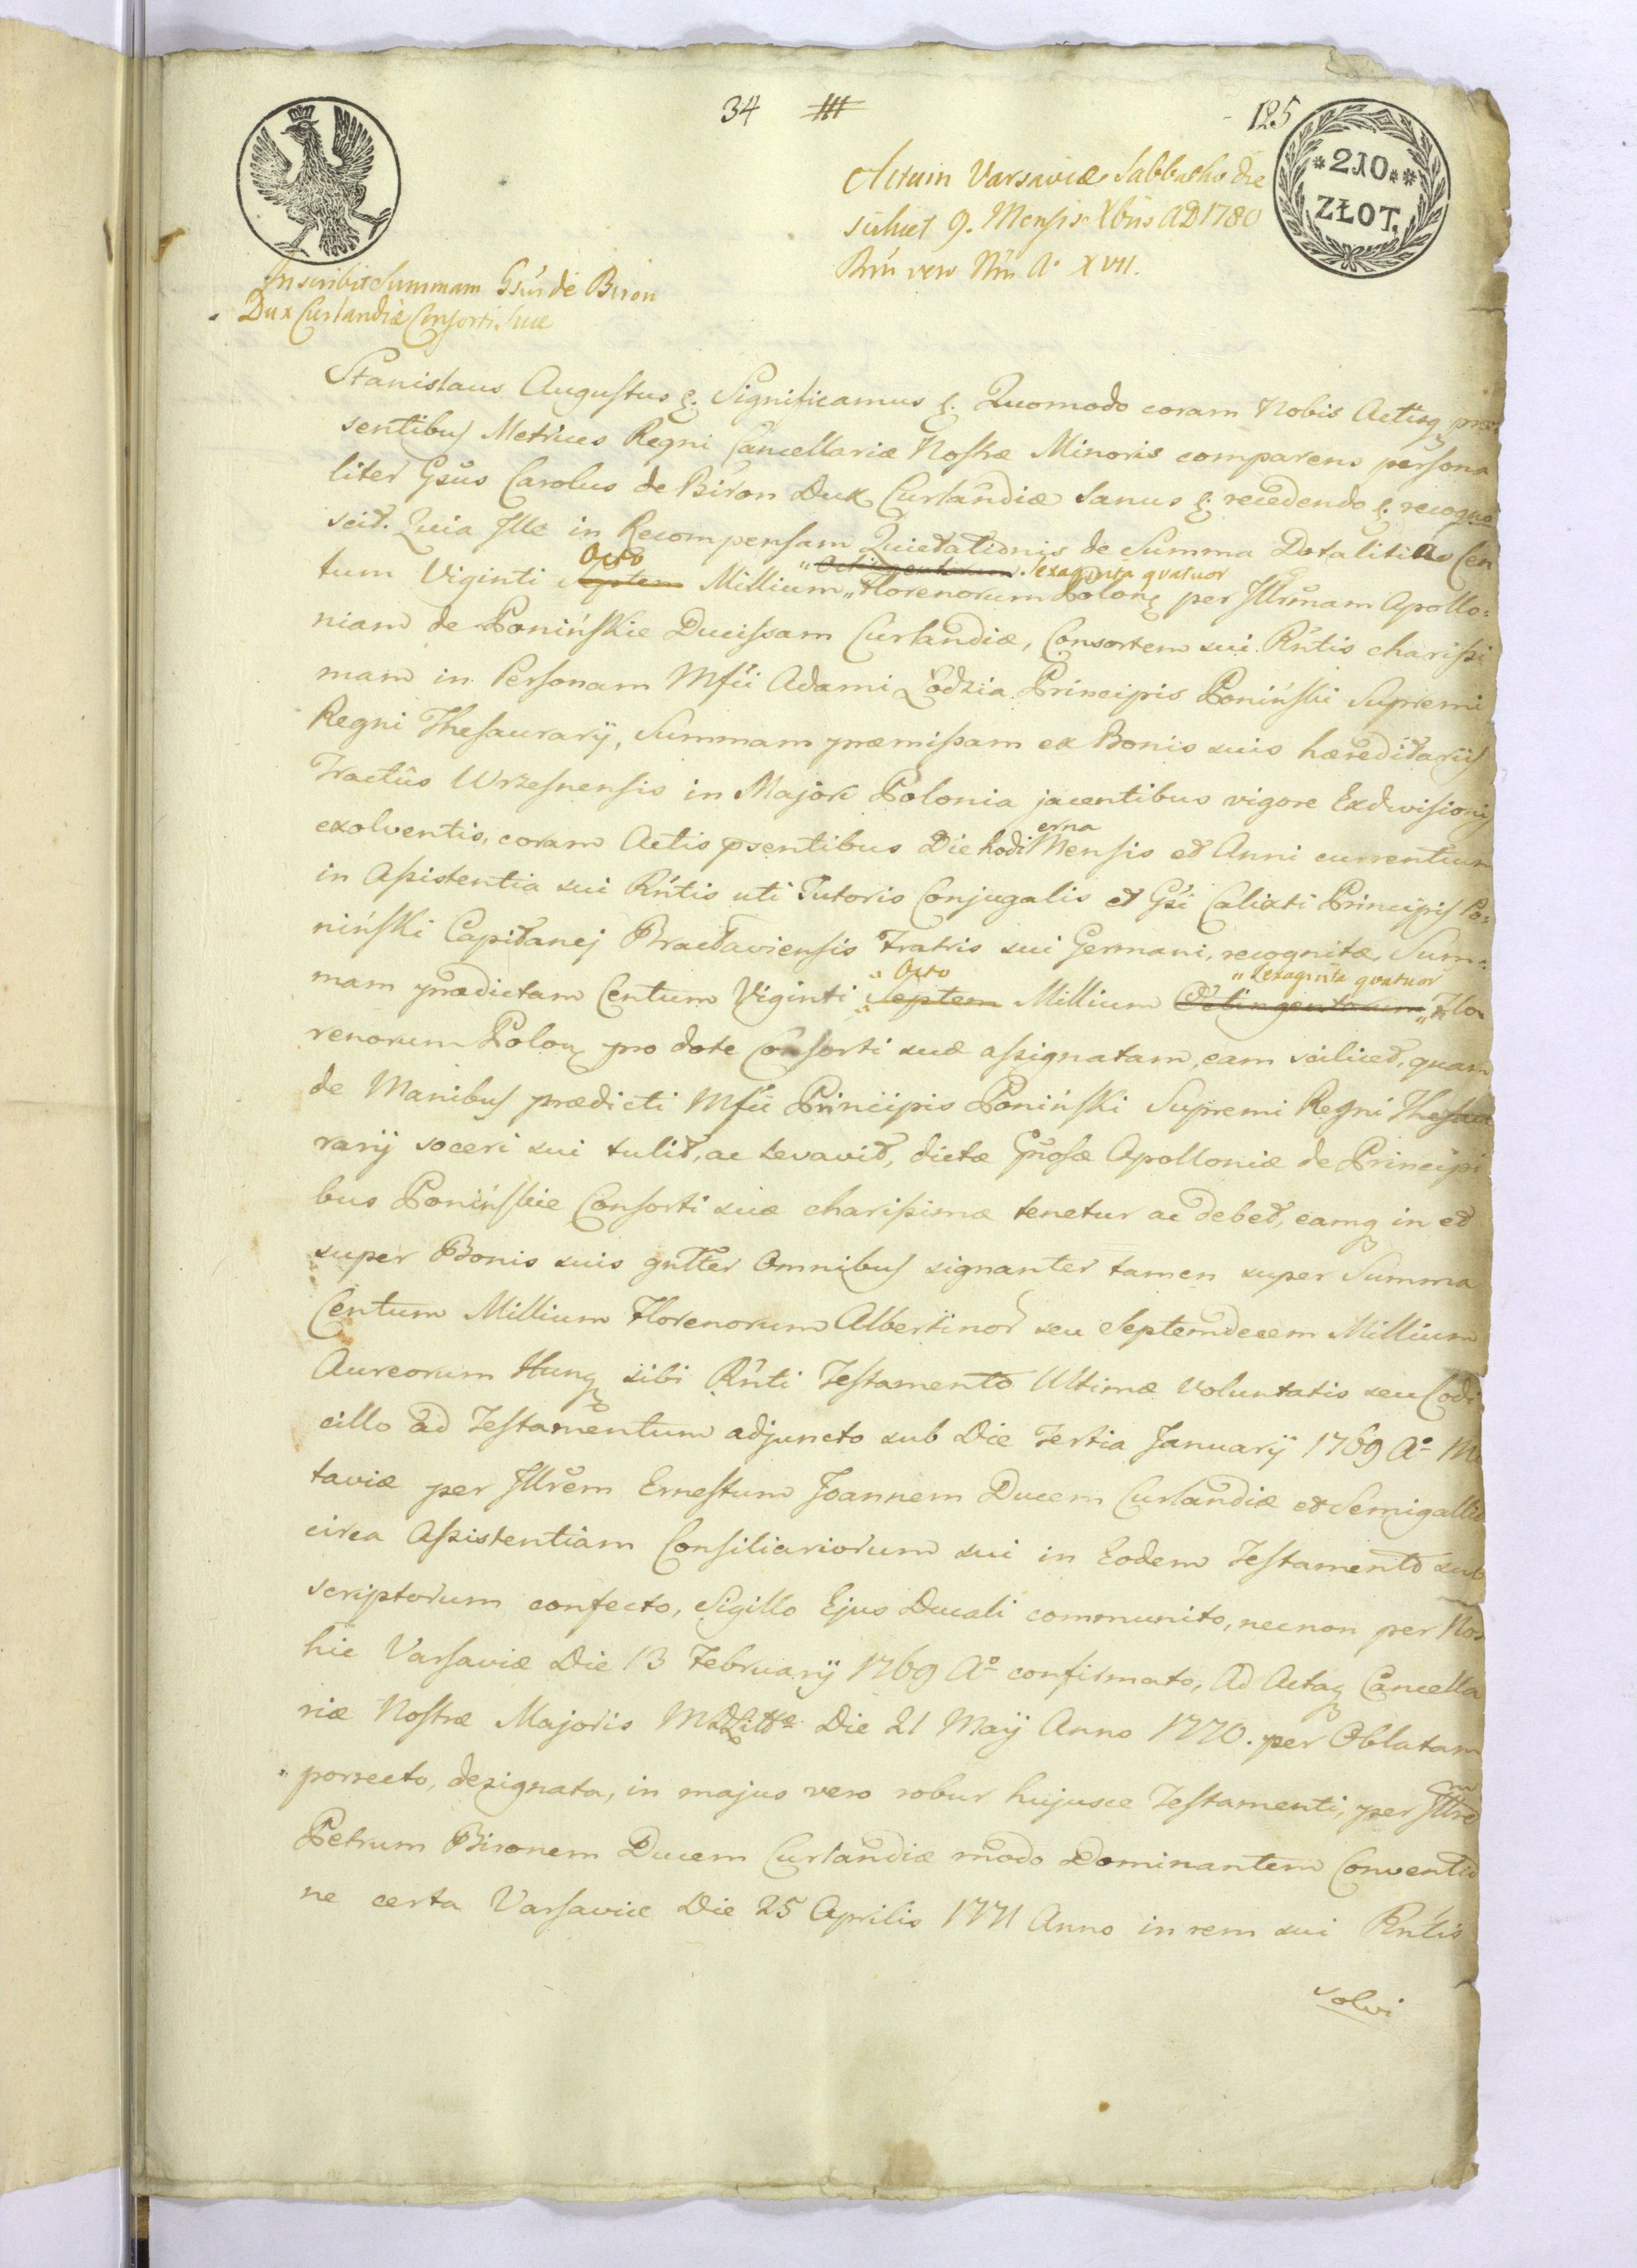 34
125
*210**
ZŁOT.
Actum Varsaviæ Sabbatho die
scilicet 9. Mensis Xbris AD 1780
Rñi vero Nñi A° XVII.
Inscribit Summam Gsus de Biron
Dux Curlandiæ Consorti Suæ
Stanislaus Augustus &. Significamus &. Quomodo coram Nobis Actisq præ
sentibus Metrices Regni Cancellariæ Nostræ Minoris comparens persona
liter Gsus Carolus de Biron Dux Curlandiæ sanus &. recedendo &. recogno
scit. Quia Ille in Recompensam Quietationis de Summa Dotalitia Cen
Octo sexaginta quatuor
tum Viginti Septem Millium Octingentorum Florenorum Polonq per Illrmam Apollo=
niam de Ponińskie Ducissam Curlandiæ, Consortem sui Rñtis charissi
mam in Personam Mfci Adami Łodzia Principis Poniński Supremi
Regni Thesaurarij, Summam præmissam ex Bonis suis hæreditarijs
Tractûs Wrzesnensis in Majori Polonia jacentibus vigore Exdivisionis
exolventis, coram Actis psentibus Die hodierna Mensis et Anni currentium
in Assistentia sui Rñtis uti Tutoris Conjugalis et Gsi Calixti Principis Po=
niński Capitanej Bractaviensis Fratris sui Germani, recognitæ, Sum=
Octo Sexaginta quatuor
mam prædictam Centum Viginti Septem Millium Octingentorum Flo
renorum Polonq pro dote Consorti suæ assignatam, eam scilicet, quam
de Manibus prædicti Mfci Principis Poniński Supremi Regni Thesau
rarij soceri sui tulit, ac levavit, dictæ Gnosæ Apolloniæ de Principi
bus Ponińskie Consorti suæ charissimæ tenetur ac debet, eamq in et
super Bonis suis gnlter Omnibus signanter tamen super Summa
Centum Millium Florenorum Albertinor seu Septemdecem Millium
Aureorum Hungq sibi Rñti Testamento Ultimæ Voluntatis seu Codi
cillo ad Testamentum adjuncto sub Die Tertia Januarij 1769 A° Mi
taviæ per Illrem Ernestum Joannem Ducem Curlandiæ et Semigalliæ
circa Assistentiam Consiliariorum sui in Eodem Testamento sub
scriptorum confecto, Sigillo Ejus Ducali communito, necnon per Nos
hic Varsaviæ Die 13 Februarij 1769 A° confirmato, Ad Actaq Cancella
riæ Nostræ Majoris Die 21 Maij Anno 1770. per Oblatam
porrecto, designata, in majus vero robur hujusce Testamenti, per Illrem
Petrum Bironem Ducem Curlandiæ modo Dominantem Conventio
ne certa Varsaviæ Die 25 Aprilis 1771 Anno in rem sui Rñtis
solvi